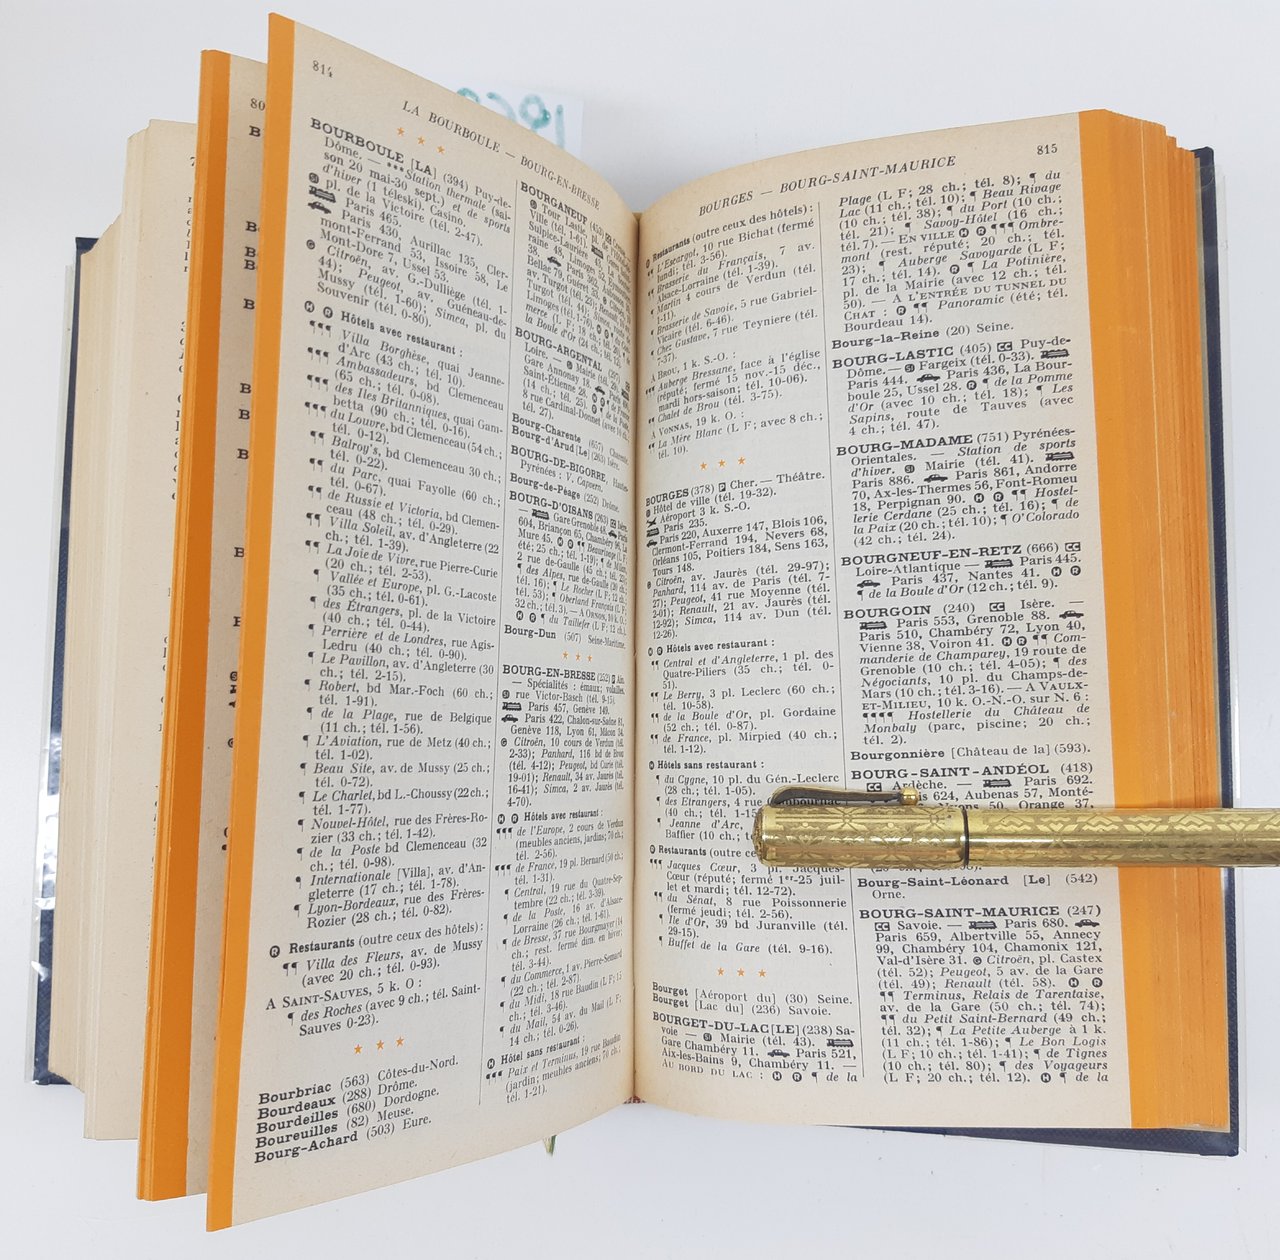 814
LA BOURBOULE — BOURG-EN-BRESSE
BOURBOULE [LA] (394) Puy-de-
Dôme. — *** Station thermale (sai-
son 20 mai-30 sept.) et de sports
d'hiver (1 téleski). Casino.
pl. de la Victoire (tél. 2-47).
Paris 465.
Paris 430, Aurillac 135, Cler-
mont-Ferrand 53, Issoire 58, Le
Mont-Dore 7, Ussel 53.
Citroën, av. G.-Dulliège (tél. 1-
44); Peugeot, av. Guéneau-de-
Mussy (tél. 1-60); Simca, pl. du
Souvenir (tél. 0-80).
Hôtels avec restaurant :
Villa Borghèse, quai Jeanne-
d'Arc (43 ch.; tél. 10).
Ambassadeurs, bd Clemenceau
(65 ch.; tél. 0-08).
des Iles Britanniques, quai Gam-
betta (90 ch.; tél. 0-16).
du Louvre, bd Clemenceau (54 ch.;
tél. 0-12).
Balroy's, bd Clemenceau 30 ch.;
tél. 0-22).
du Parc, quai Fayolle (60 ch.;
tél. 0-67).
de Russie et Victoria, bd Clemen-
ceau (48 ch.; tél. 0-29).
Villa Soleil, av. d'Angleterre (22
ch.; tél. 1-39).
La Joie de Vivre, rue Pierre-Curie
(20 ch.; tél. 2-53).
Vallée et Europe, pl. G.-Lacoste
(35 ch.; tél. 0-61).
des Étrangers, pl. de la Victoire
(40 ch.; tél. 0-44).
Perrière et de Londres, rue Agis-
Ledru (40 ch.; tél. 0-90).
Le Pavillon, av. d'Angleterre (30
ch.; tél. 2-15).
Robert, bd Mar.-Foch (60 ch.;
tél. 1-91).
de la Plage, rue de Belgique
(11 ch.; tél. 1-56).
L'Aviation, rue de Metz (40 ch.;
tél. 1-02).
Beau Site, av. de Mussy (25 ch.;
tél. 0-72).
Le Charlet, bd L.-Choussy (22 ch.;
tél. 1-77).
Nouvel-Hôtel, rue des Frères-Ro-
zier (33 ch.; tél. 1-42).
de la Poste bd Clemenceau (32
ch.; tél. 0-98).
Internationale [Villa], av. d'An-
gleterre (17 ch.; tél. 1-78).
Lyon-Bordeaux, rue des Frères-
Rozier (28 ch.; tél. 0-82).
Restaurants (outre ceux des hôtels) :
Villa des Fleurs, av. de Mussy
(avec 20 ch.; tél. 0-93).
A SAINT-SAUVES, 5 k. O :
des Roches (avec 9 ch.; tél. Saint-
Sauves 0-23).
Bourbriac (563) Côtes-du-Nord.
Bourdeaux (288) Drôme.
Bourdeilles (680) Dordogne.
Boureuilles (82) Meuse.
Bourg-Achard (503) Eure.
BOURGANEUF
BOURG-ARGENTAL
Bourg-Charente (657) Charente.
Bourg-d'Arud [Le] (263) Isère.
BOURG-DE-BIGORRE, Hautes-
Pyrénées : V. Capvern.
Bourg-de-Péage (252) Drôme.
BOURG-D'OISANS (263) Isère.
Bourg-Dun (507) Seine-Maritime.
BOURG-EN-BRESSE (252) P Ain.
— Spécialités : émaux; volailles.
rue Victor-Basch (tél. 9-15).
Paris 457, Genève 149.
Paris 422, Chalon-sur-Saône 81,
Genève 118, Lyon 61, Mâcon 34.
Citroën, 10 cours de Verdun (tél.
2-33); Panhard, 116 bd de Brou
(tél. 4-12); Peugeot, bd Curie (tél.
19-01); Renault, 34 av. Jaurès (tél.
16-41); Simca, 2 av. Jaurès (tél.
4-70).
Hôtels avec restaurant :
de l'Europe, 2 cours de Verdun
(meubles anciens, jardins; 70 ch.;
tél. 2-56).
de France, 19 pl. Bernard (50 ch.;
tél. 1-31).
Central, 19 rue du Quatre-Sep-
tembre (22 ch.; tél. 3-39).
de la Poste, 16 av. d'Alsace-
Lorraine (26 ch.; tél. 1-61).
de Bresse, 37 rue Bourgmayer (14
ch.; rest. fermé dim. en hiver;
tél. 3-44).
du Commerce, 1 av. Pierre-Semard
(22 ch.; tél. 2-87).
du Midi, 18 rue Baudin (L F; 15
ch.; tél. 3-46).
du Mail, 54 av. du Mail (L F;
14 ch.; tél. 0-26).
Hôtel sans restaurant :
Paix et Terminus, 19 rue Baudin
(jardin; meubles anciens; 70 ch.;
tél. 1-21).
BOURGES — BOURG-SAINT-MAURICE
815
Restaurants (outre ceux des hôtels) :
L'Escargot, 10 rue Bichat (fermé
lundi; tél. 3-56).
Brasserie du Français, 7 av.
Alsace-Lorraine (tél. 1-39).
Martin 4 cours de Verdun (tél.
1-11).
Brasserie de Savoie, 5 rue Gabriel-
Vicaire (tél. 6-46).
Chez Gustave, 7 rue Teyniere (tél.
7-37).
A BROU, 1 k. S.-O. :
Auberge Bressane, face à l'église
(réputé; fermé 15 nov.-15 déc.,
mardi hors-saison; tél. 10-06).
Chalet de Brou (tél. 3-75).
A VONNAS, 19 k. O. :
La Mère Blanc (L F; avec 8 ch.;
tél. 10).
BOURGES (378) P Cher. — Théâtre.
Hôtel de ville (tél. 19-32).
Aéroport 3 k. S.-O.
Paris 235.
Paris 220, Auxerre 147, Blois 106,
Clermont-Ferrand 194, Nevers 68,
Orléans 105, Poitiers 184, Sens 163,
Tours 148.
Citroën, av. Jaurès (tél. 29-97);
Panhard, 114 av. de Paris (tél. 7-
27); Peugeot, 41 rue Moyenne (tél.
2-01); Renault, 21 av. Jaurès (tél.
12-92); Simca, 114 av. Dun (tél.
12-26).
Hôtels avec restaurant :
Central et d'Angleterre, 1 pl. des
Quatre-Piliers (35 ch.; tél. 0-
51).
Le Berry, 3 pl. Leclerc (60 ch.;
tél. 10-58).
de la Boule d'Or, pl. Gordaine
(52 ch.; tél. 0-87).
de France, pl. Mirpied (40 ch.;
tél. 1-12).
Hôtels sans restaurant :
du Cygne, 10 pl. du Gén.-Leclerc
(28 ch.; tél. 1-05).
des Etrangers, 4 rue Cambournac
(40 ch.; tél. 1-15
Jeanne d'Arc,
Baffier (10 ch.; t
Restaurants (outre ce
Jacques Cœur, 3 pl. Jacques-
Cœur (réputé; fermé 1er-25 juil-
let et mardi; tél. 12-72).
du Sénat, 8 rue Poissonnerie
(fermé jeudi; tél. 2-56).
Ile d'Or, 39 bd Juranville (tél.
29-15).
Buffet de la Gare (tél. 9-16).
Bourget [Aéroport du] (30) Seine.
Bourget [Lac du] (236) Savoie.
BOURGET-DU-LAC [LE] (238) Sa-
voie — Mairie (tél. 43).
Gare Chambéry 11. Paris 521,
Aix-les-Bains 9, Chambéry 11. —
AU BORD DU LAC : H R ¶ de la
Plage (L F; 28 ch.; tél. 8); ¶ du
Lac (11 ch.; tél. 10); ¶ Beau Rivage
(10 ch.; tél. 38); ¶ du Port (10 ch.;
tél. 21); ¶ Savoy-Hôtel (16 ch.;
tél. 7). — EN VILLE H R ¶¶¶ Ombre-
mont (rest. réputé; 20 ch.; tél.
23); ¶ Auberge Savoyarde (L F;
17 ch.; tél. 14). R ¶ La Potinière,
pl. de la Mairie (avec 12 ch.; tél.
50). — A L'ENTRÉE DU TUNNEL DU
CHAT : R ¶¶ Panoramic (été; tél.
Bourdeau 14).
Bourg-la-Reine (20) Seine.
BOURG-LASTIC (405) CC Puy-de-
Dôme. — Fargeix (tél. 0-33).
Paris 444. Paris 436, La Bour-
boule 25, Ussel 28. R ¶ de la Pomme
d'Or (avec 10 ch.; tél. 18); ¶ Les
Sapins, route de Tauves (avec
4 ch.; tél. 47).
BOURG-MADAME (751) Pyrénées-
Orientales. — Station de sports
d'hiver. Mairie (tél. 41).
Paris 886. Paris 861, Andorre
70, Ax-les-Thermes 56, Font-Romeu
18, Perpignan 90. H R ¶¶ Hostel-
lerie Cerdane (25 ch.; tél. 16); ¶ de
la Paix (20 ch.; tél. 10); ¶ O'Colorado
(42 ch.; tél. 24).
BOURGNEUF-EN-RETZ (666) CC
Loire-Atlantique — Paris 445.
Paris 437, Nantes 41. H R
¶ de la Boule d'Or (12 ch.; tél. 9).
BOURGOIN (240) CC Isère. —
Paris 553, Grenoble 88.
Paris 510, Chambéry 72, Lyon 40,
Vienne 38, Voiron 41. H R ¶¶ Com-
manderie de Champarey, 19 route de
Grenoble (10 ch.; tél. 4-05); ¶ des
Négociants, 10 pl. du Champs-de-
Mars (10 ch.; tél. 3-16). — A VAULX-
ET-MILIEU, 10 k. O.-N.-O. sur N. 6 :
¶¶¶¶ Hostellerie du Château de
Monbaly (parc, piscine; 20 ch.;
tél. 2).
Bourgonnière [Château de la] (593).
BOURG-SAINT-ANDÉOL (418)
CC Ardèche. — Paris 692.
624, Aubenas 57, Monté-
50, Orange 37,
Bourg-Saint-Léonard [Le] (542)
Orne.
BOURG-SAINT-MAURICE (247)
CC Savoie. — Paris 680.
Paris 659, Albertville 55, Annecy
99, Chambéry 104, Chamonix 121,
Val-d'Isère 31. Citroën, pl. Castex
(tél. 52); Peugeot, 5 av. de la Gare
(tél. 49); Renault (tél. 58). H R
¶¶ Terminus, Relais de Tarentaise,
av. de la Gare (50 ch.; tél. 74);
¶¶ du Petit Saint-Bernard (49 ch.;
tél. 32); ¶ La Petite Auberge à 1 k.
(11 ch.; tél. 1-86); ¶ Le Bon Logis
(L F; 10 ch.; tél. 1-41); ¶ de Tignes
(10 ch.; tél. 80); ¶ des Voyageurs
(L F; 20 ch.; tél. 12). H ¶ de la